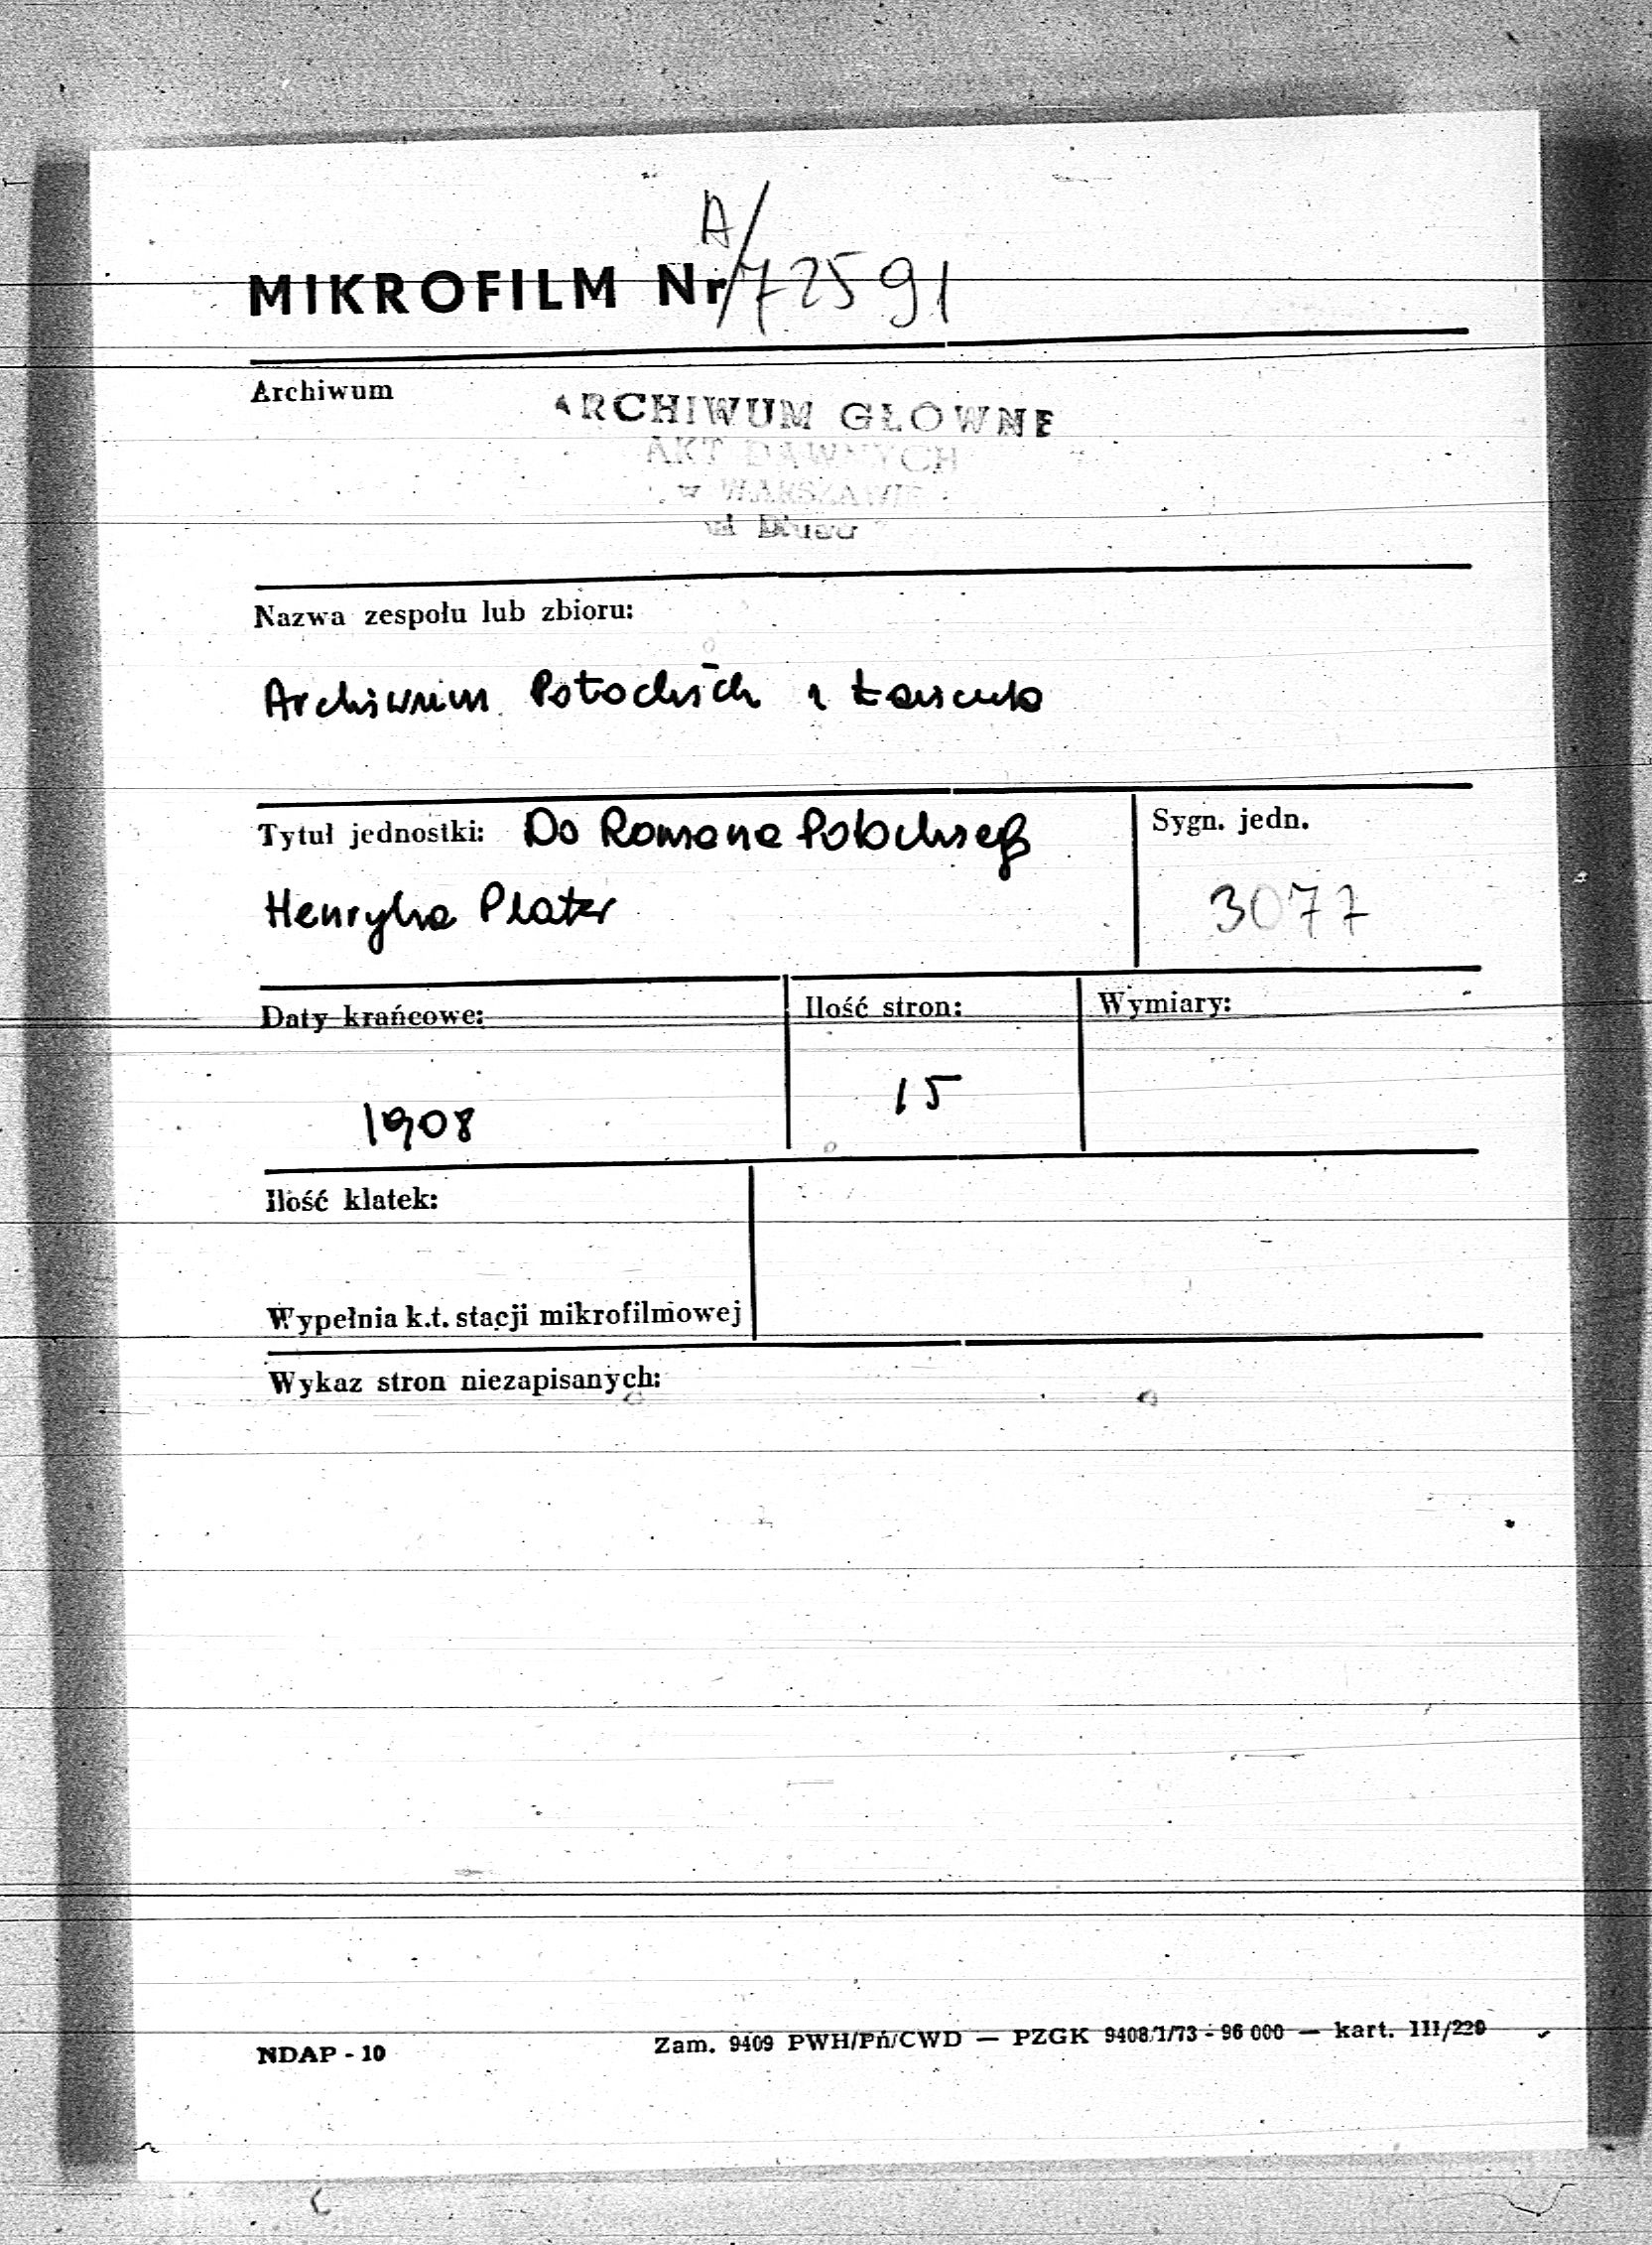 A/
MIKROFILM Nr 72591
Archiwum
ARCHIWUM GŁÓWNE
AKT DAWNYCH
w WARSZAWIE
ul Długa
Nazwa zespołu lub zbioru:
Archiwum Potockich z Łańcuta
Tytuł jednostki: Do Romana Potockiego
Sygn. jedn.
Henryka Plater
3077
Daty krańcowe:
Ilość stron:
Wymiary:
1908
15
Ilość klatek:
Wypełnia k.t. stacji mikrofilmowej
Wykaz stron niezapisanych:
NDAP - 10
Zam. 9409 PWH/Pń/CWD — PZGK 9408/1/73 - 96 000 — kart. III/220